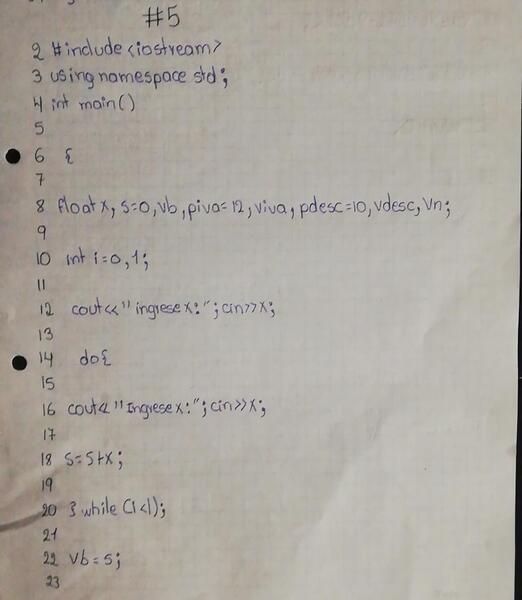 #5
2 #include <iostream>
3 using namespace std;
4 int main()
5
6 {
7
8 float x, s=0, vb, piva=12, viva, pdesc=10, vdesc, Vn;
9
10 int i=0, 1;
11
12 cout<<"ingrese x:"; cin>>x;
13
14 do{
15
16 cout<<"Ingrese x:"; cin>>x;
17
18 s=s+x;
19
20 } while (i<1);
21
22 Vb=s;
23